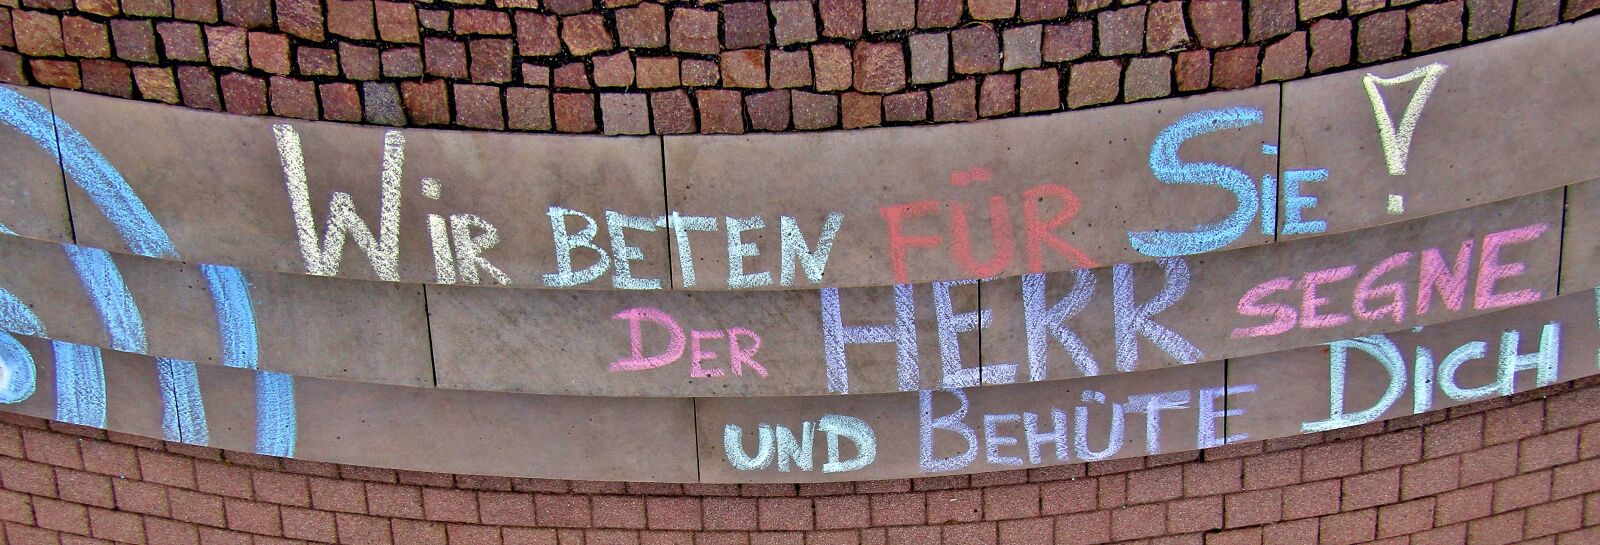 Wir beten für Sie!
Der HERR segne
und Behüte Dich